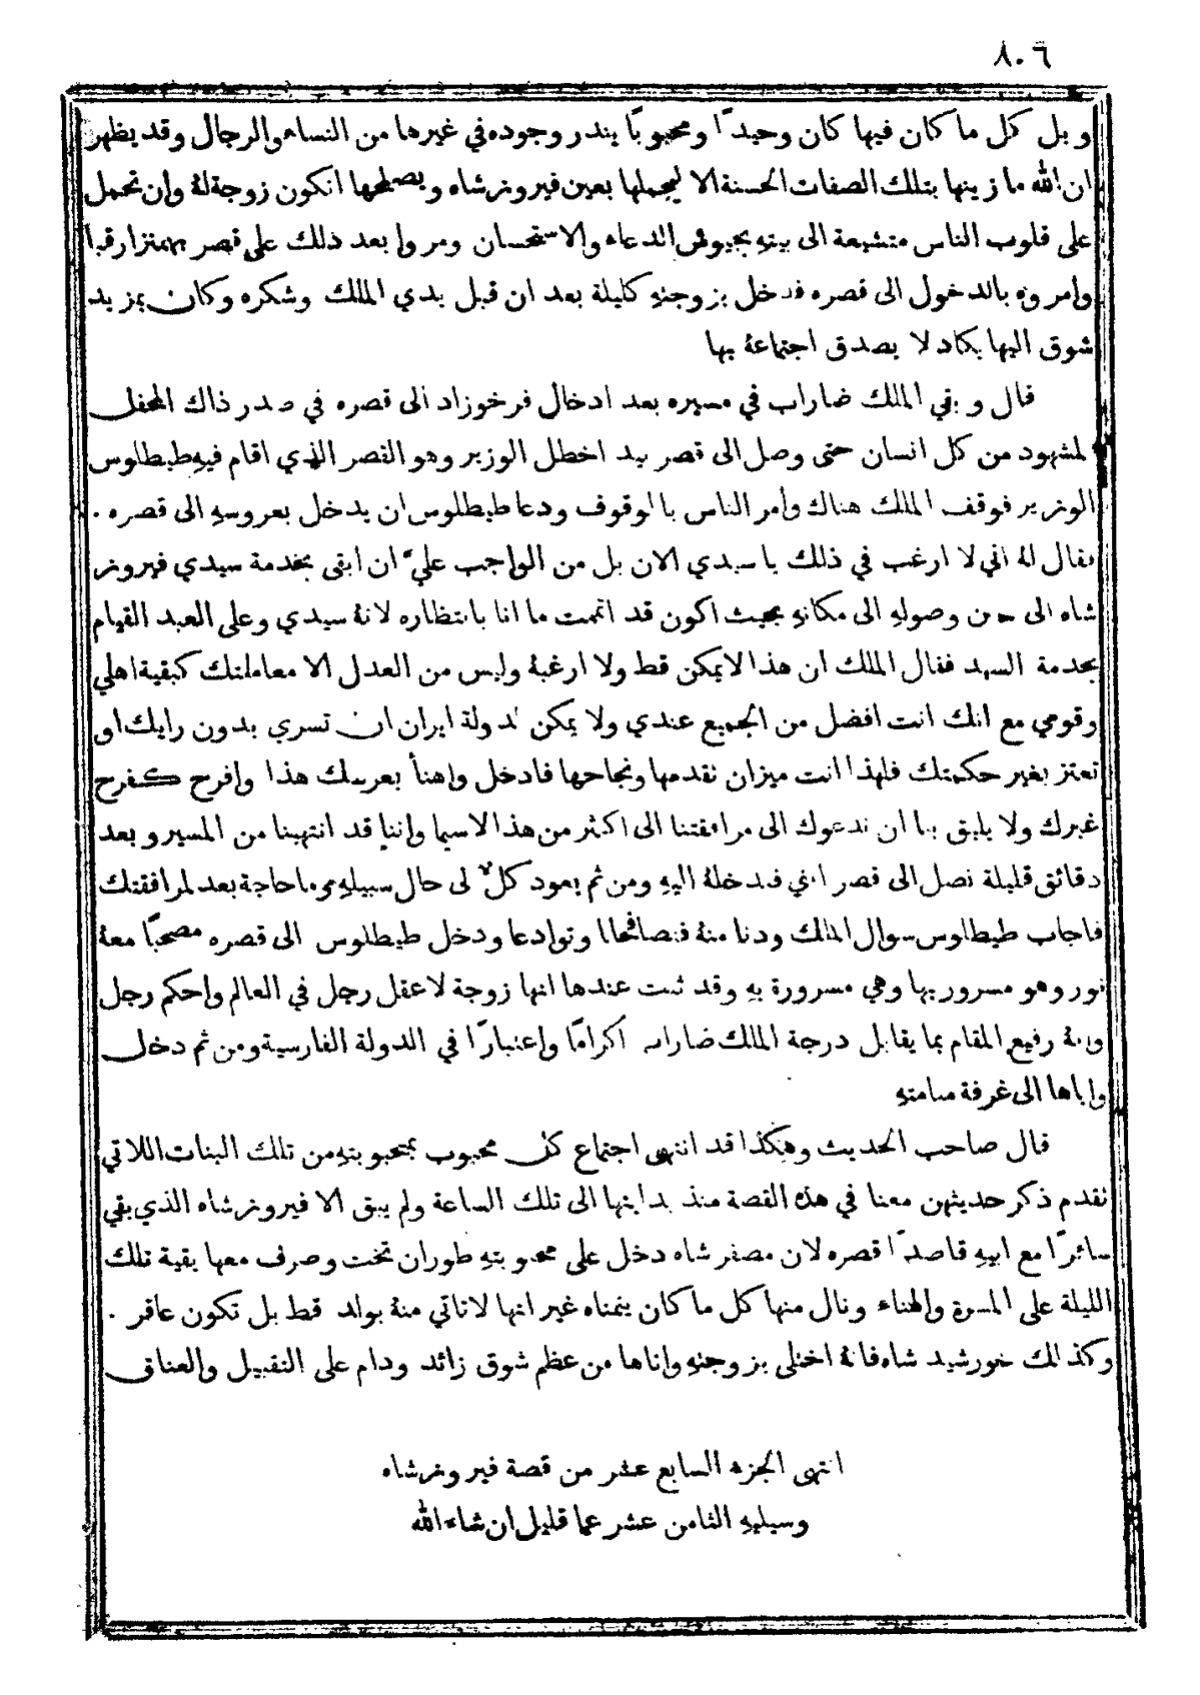 ٨٠٦
وبل كل ما كان فيها كان وحيدًا ومحبوبًا يندر وجوده في غيرها من النساء والرجال وقد يظهر
ان الله ما زينها بتلك الصفات الحسنة الا ليجملها بعين فيروزشاه ويصطحها انكون زوجة لهُ وان تحمل
على قلوب الناس متشيعة الى بيتهِ بجيوش الدعاء والاستحسان ومروا بعد ذلك على قصر بهمنزار قبا
وامروه بالدخول الى قصره فدخل بزوجتهِ كليلة بعد ان قبل يدي الملك وشكره وكان بمزيد
شوق اليها يكاد لا يصدق اجتماعهُ بها
قال وبقي الملك ضاراب في مسيره بعد ادخال فرخوزاد الى قصره في صدر ذاك المحفل
المشهود من كل انسان حتى وصل الى قصر بيد اخطل الوزير وهو القصر الذي اقام فيهِ طيطلوس
الوزير فوقف الملك هناك وأمر الناس بالوقوف ودعا طيطلوس ان يدخل بعروسهِ الى قصره .
فقال لهُ اني لا ارغب في ذلك يا سيدي الان بل من الواجب عليَّ ان ابقى بخدمة سيدي فيروز
شاه الى حين وصولهِ الى مكانهِ بحيث اكون قد اتممت ما انا بانتظاره لانهُ سيدي وعلى العبد القيام
بخدمة السيد فقال الملك ان هذا لا يمكن قط ولا ارغبهُ وليس من العدل الا معاملتك كبقية اهلي
وقومي مع انك انت افضل من الجميع عندي ولا يمكن لدولة ايران ان تسري بدون رايك او
تعتز بغير حكمتك فلهذا انت ميزان تقدمها ونجاحها فادخل واهنأ بعرسك هذا وافرح كفرح
غيرك ولا يليق بنا ان ندعوك الى مرافقتنا الى اكثر من هذا لاسيما واننا قد انتهينا من المسير وبعد
دقائق قليلة نصل الى قصر ابني فندخلهُ اليهِ ومن ثم يعود كلٌ الى حال سبيلهِ وما حاجة بعد لمرافقتك
فاجاب طيطلوس سوال الملك ودنا منهُ فتصافحا وتوادعا ودخل طيطلوس الى قصره مصحبًا معهُ
نور وهو مسرور بها وهي مسرورة بهِ وقد ثبت عندها انها زوجة لاعقل رجل في العالم واحكم رجل
وانهُ رفيع المقام بما يقابل درجة الملك ضاراب اكرامًا واعتبارًا في الدولة الفارسية ومن ثم دخل
واياها الى غرفة منامتهِ
قال صاحب الحديث وهكذا قد انتهى اجتماع كل محبوب بمحبوبتهِ من تلك البنات اللاتي
تقدم ذكر حديثهن معنا في هذه القصة منذ بدايتها الى تلك الساعة ولم يبق الا فيروزشاه الذي بقي
سائرًا مع ابيهِ قاصدًا قصره لان مصفر شاه دخل على محبوبتهِ طوران تخت وصرف معها بقية تلك
الليلة على المسرة والهناء ونال منها كل ما كان يتمناه غير انها لا تاتي منهُ بولد قط بل تكون عاقر .
وكذلك خورشيد شاه فانهُ اختلى بزوجتهِ واتاها من عظم شوق زائد ودام على التقبيل والعناق
انتهى الجزء السابع عشر من قصة فيروزشاه
وسيليهِ الثامن عشر عما قليل ان شاء الله